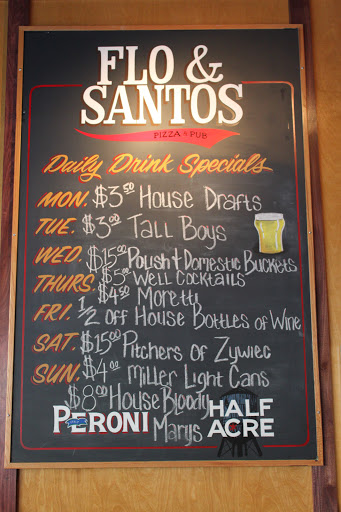 FLO &
SANTOS
PIZZA & PUB
Daily Drink Specials
MON. $3.50 House Drafts
TUE. $3.00 Tall Boys
WED. $15.00 Polish & Domestic Buckets
THURS. $5.00 Well Cocktails
$4.50 Moretti
FRI. 1/2 off House Bottles of Wine
SAT. $15.00 Pitchers of Zywiec
SUN. $4.00 Miller Light Cans
$8.00 House Bloody
Marys
PERONI
HALF
ACRE